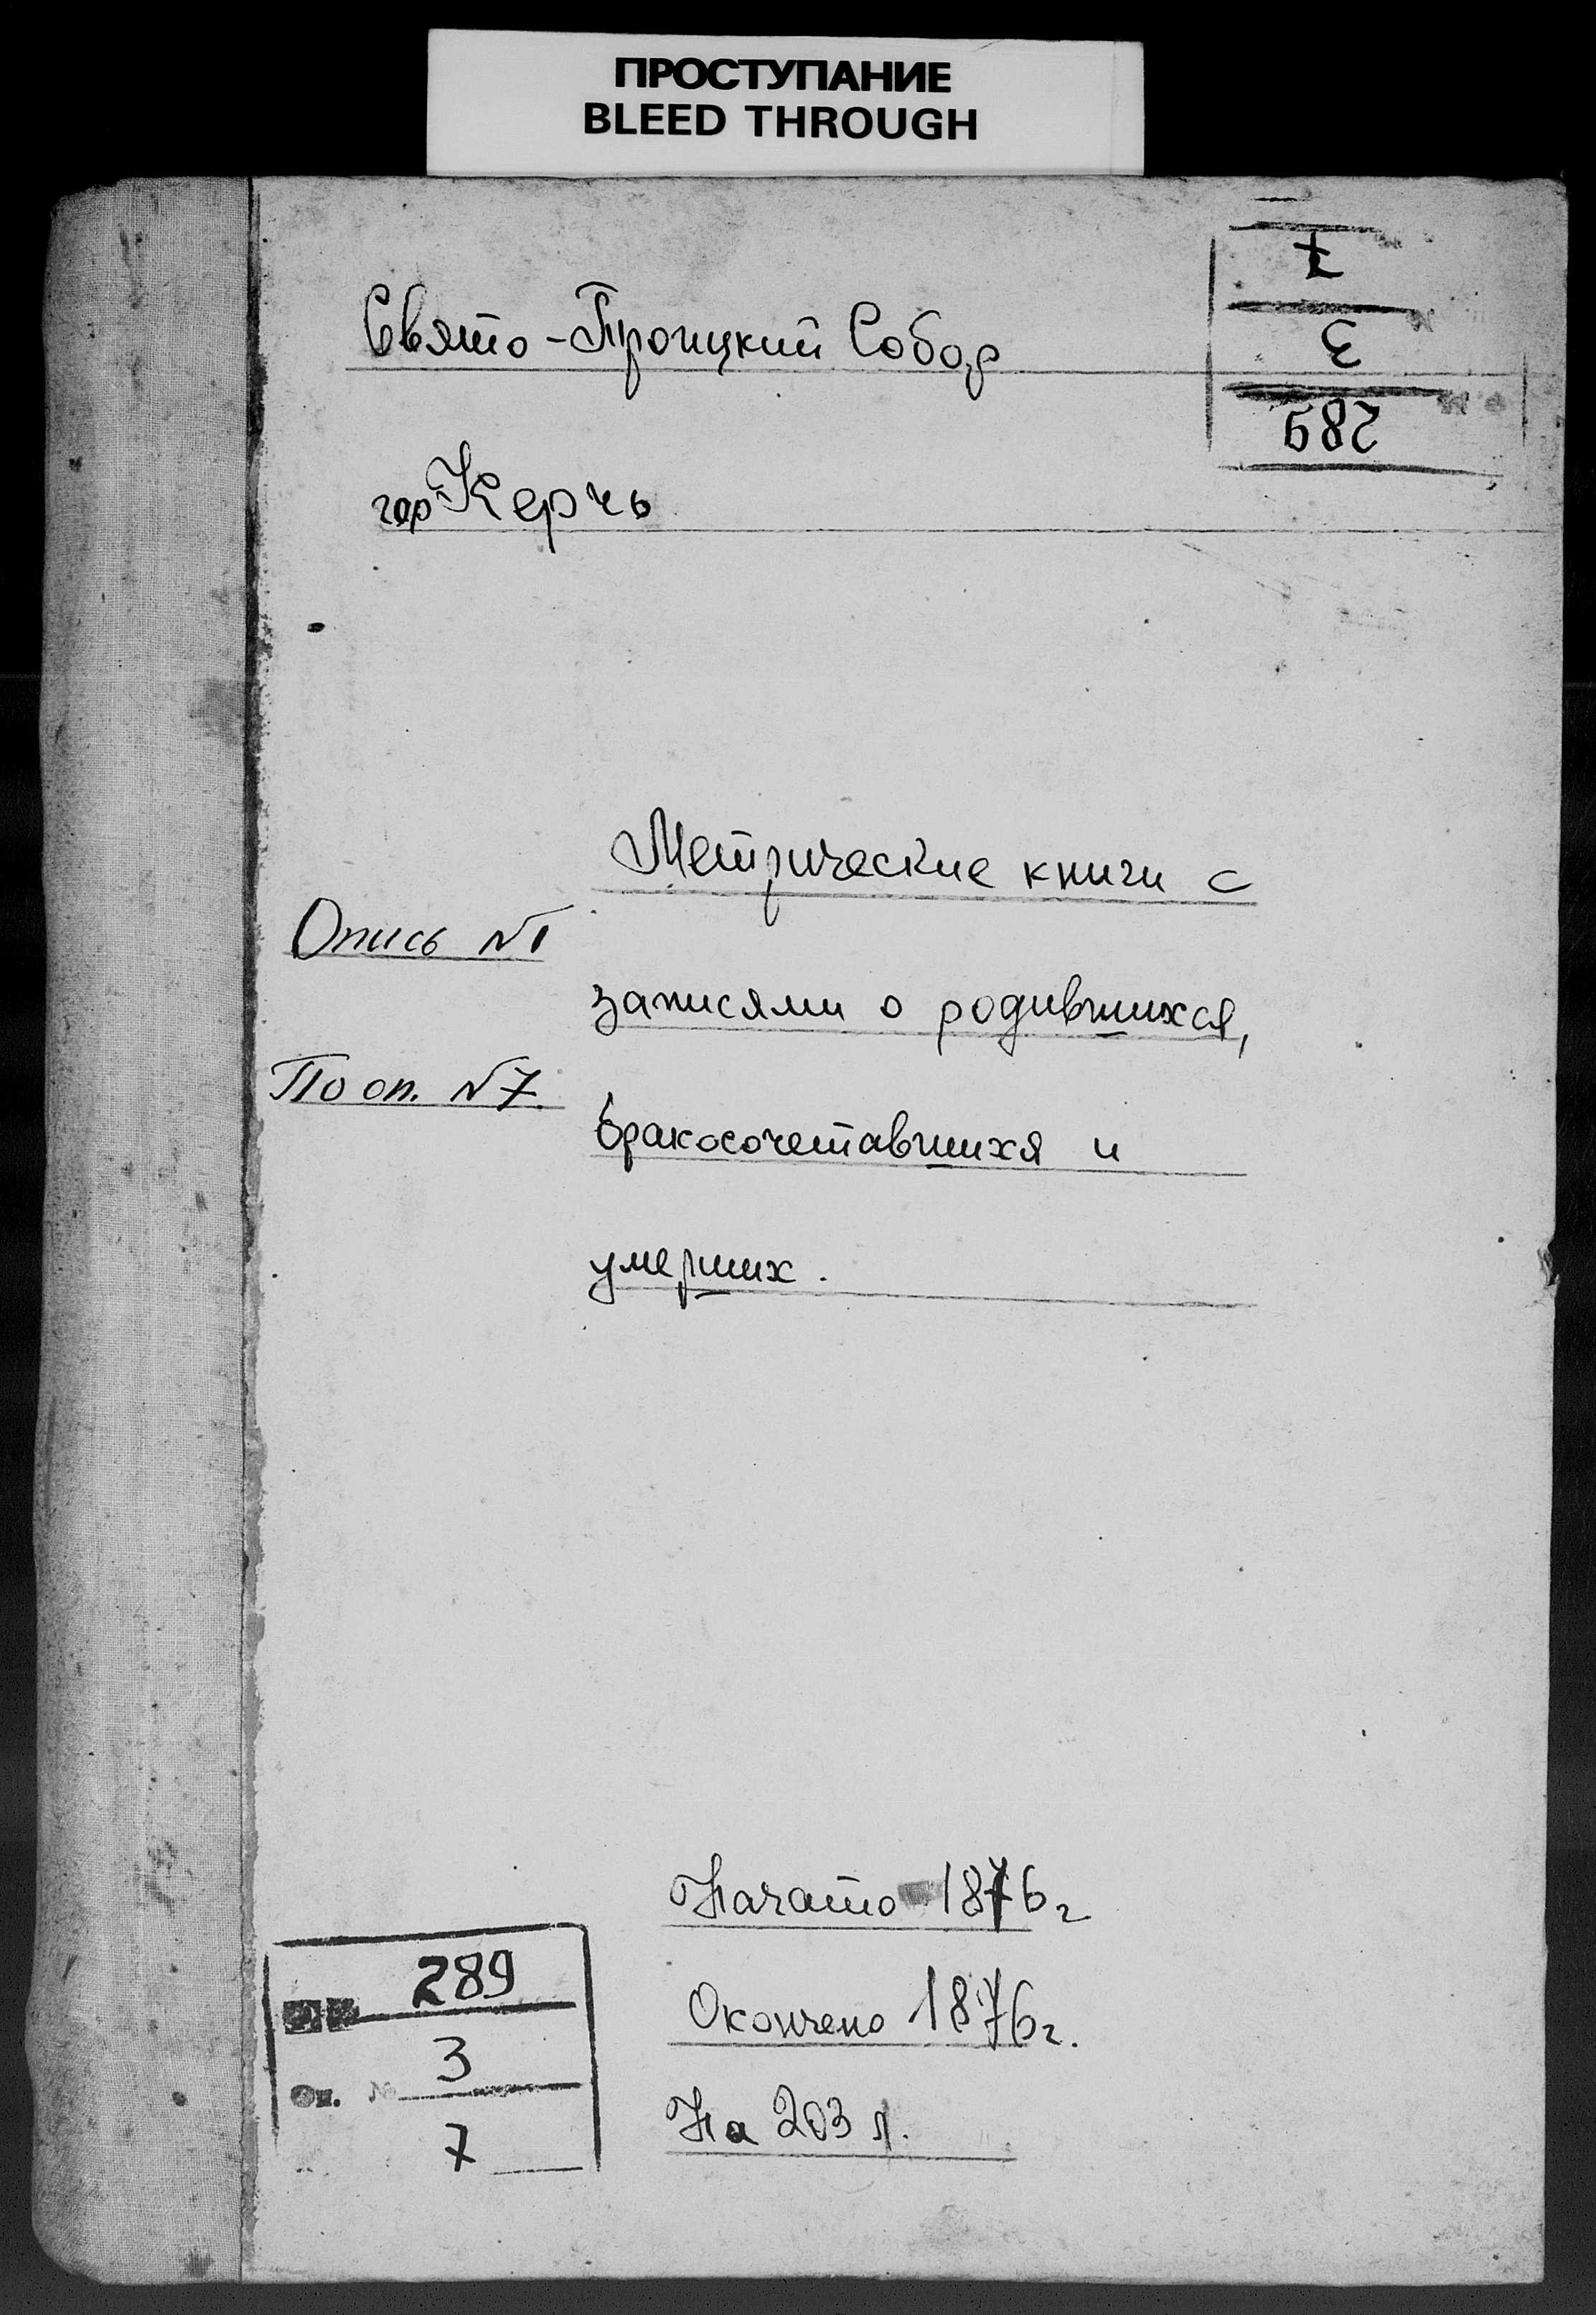 ПРОСТУПАНИЕ
BLEED THROUGH
7
3
289
Свято-Троицкий Собор
гор Керчь
Метрические книги с
Опись №1
записями о родившихся,
По оп. №7.
бракосочетавшихя и
умерших.
Начато 1876 г
Окончено 1876 г.
На 203 л.
289
3
Оп. №
7